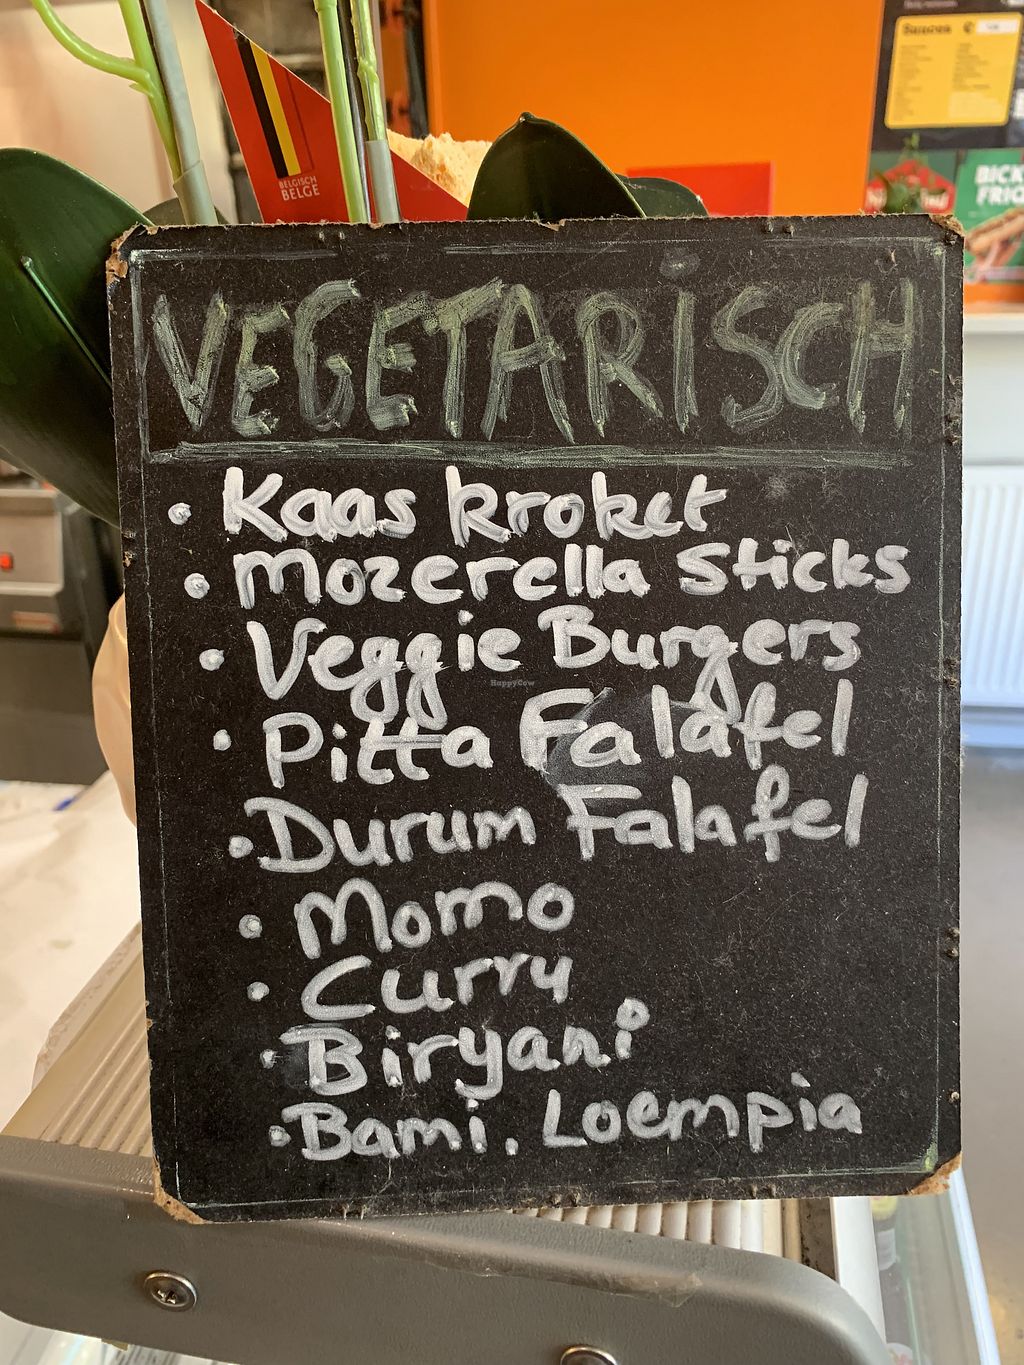 BELGISCH
BELGE
Sauces €
BICK
FRIG
VEGETARiSCH
• Kaas kroket
• Mozerella Sticks
• Veggie Burgers
HappyCow
• Pitta Falafel
• Durum Falafel
• Momo
• Curry
• Biryani
• Bami. Loempia